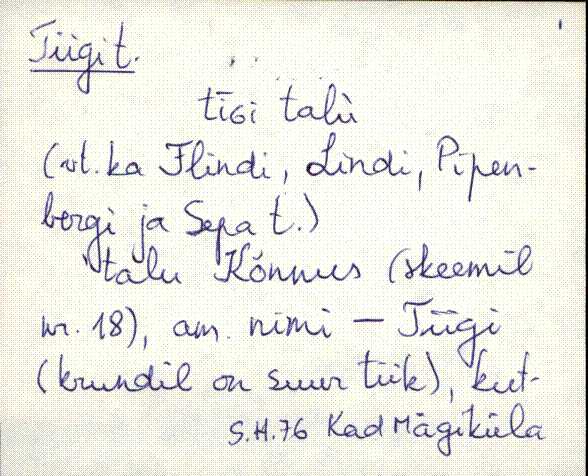 Tiigi t.
tīGi talù
(vt. ka Flindi, Lindi, Pipen-
bergi ja Sepa t.)
talu Kónnus (skeemil
nr. 18), am. nimi — Tiigi
(krundil on suur tiik), kut-
S.H.76 Kad Mägiküla